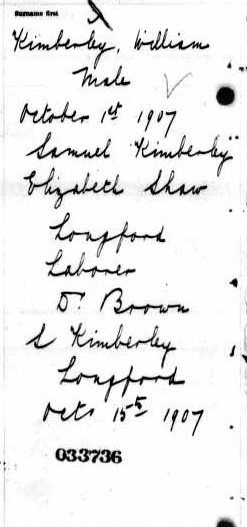 Surname first
Kimberley, William
Male
October 1st 1907
Samuel Kimberley
Elizabeth Shaw
Longford
Laborer
Dr Brown
S Kimberley
Longford
Octs 15th 1907
033736